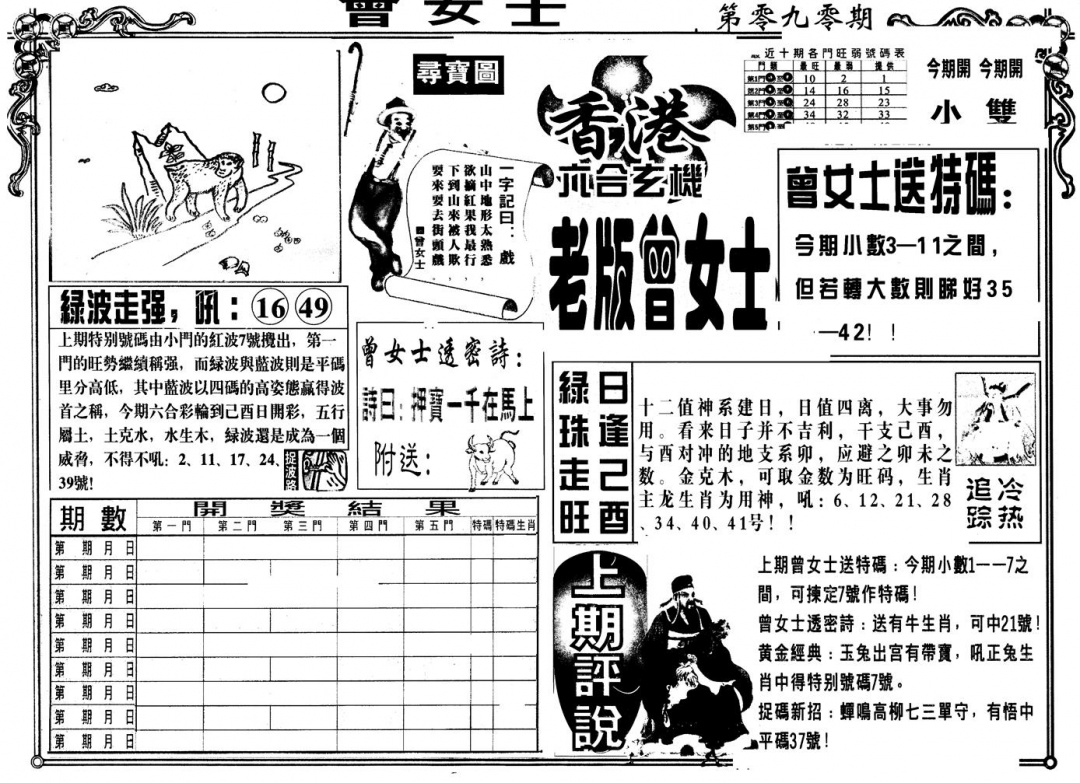 曾女士
第零九零期
尋寶圖
一字記曰：戲
山中地形太熟悉
欲摘紅果我最行
下到山來被人欺
耍來耍去街頭戲
■曾女士
香港
六合玄機
老版曾女士
近十期各門旺弱號碼表
門類 最旺 最弱 提供
第1門 10 2 1
第2門 14 16 15
第3門 24 28 23
第4門 34 32 33
第5門
今期開 今期開
小 雙
曾女士送特碼：
今期小數3—11之間，
但若轉大數則睇好35
—42！！
綠波走强，吼：16 49
上期特别號碼由小門的紅波7號攪出，第一
門的旺勢繼續稱强，而緑波與藍波則是平碼
里分高低，其中藍波以四碼的高姿態贏得波
首之稱，今期六合彩輪到己酉日開彩，五行
屬土，土克水，水生木，緑波還是成為一個
威脅，不得不吼：2、11、17、24、
39號！
捉波路
曾女士透密詩：
詩曰：押寶一千在馬上
附送：
綠珠走旺
日逢己酉
十二值神系建日，日值四离，大事勿
用。看来日子并不吉利，干支己酉，
与酉对冲的地支系卯，应避之卯未之
数。金克木，可取金数为旺码，生肖
主龙生肖为用神，吼：6、12、21、28
、34、40、41号！！
追踪
冷热
期數 開獎結果
第一門 第二門 第三門 第四門 第五門 特碼 特碼生肖
第 期 月 日
第 期 月 日
第 期 月 日
第 期 月 日
第 期 月 日
第 期 月 日
第 期 月 日
第 期 月 日
第 期 月 日
上期評說
上期曾女士送特碼：今期小數1——7之
間，可揀定7號作特碼！
曾女士透密詩：送有牛生肖，可中21號！
黄金經典：玉兔出宫有帶寶，吼正兔生
肖中得特别號碼7號。
捉碼新招：蟬鳴高柳七三單守，有悟中
平碼37號！